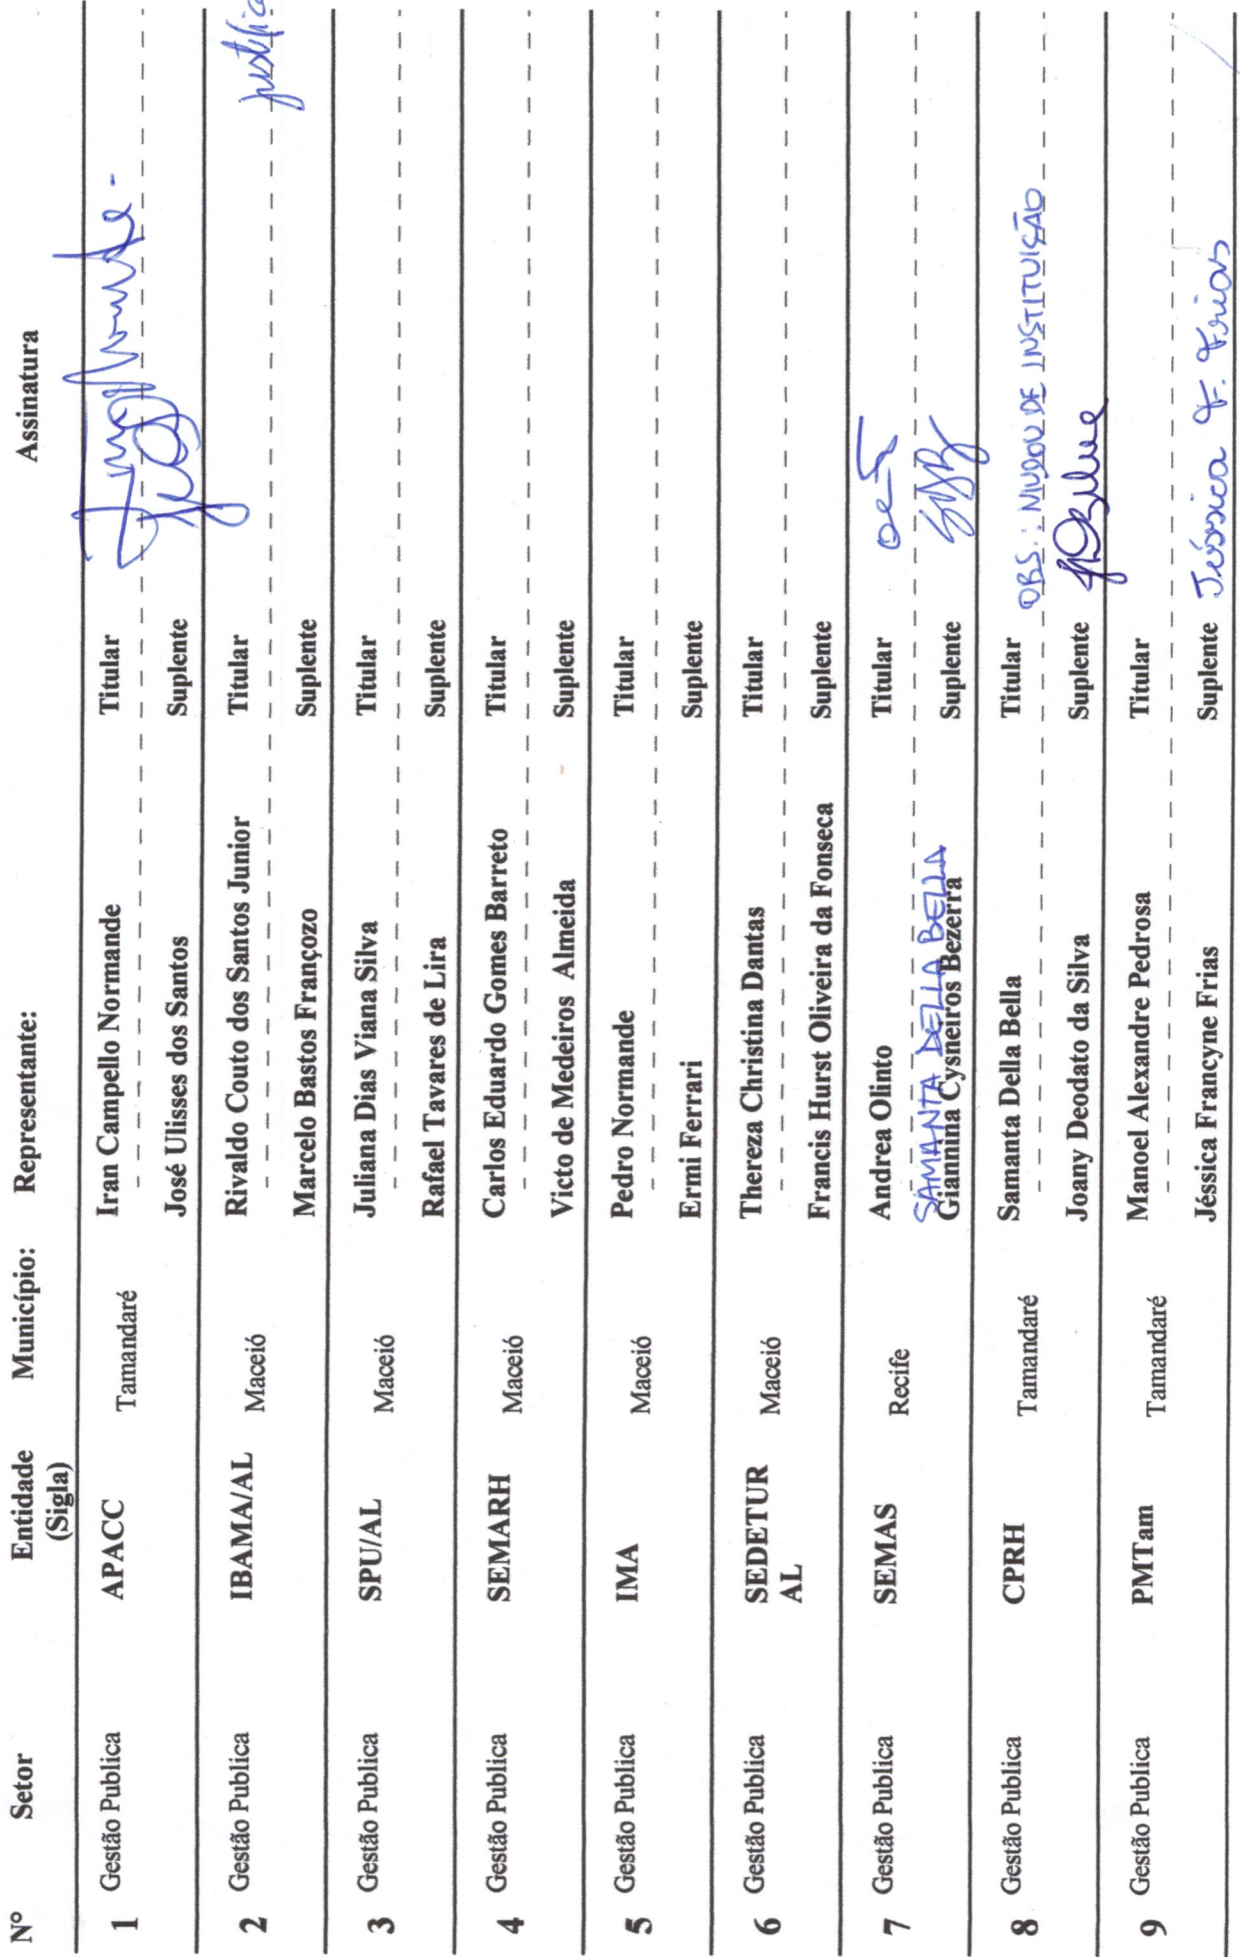 Nº Setor Entidade (Sigla) Município: Representante: Assinatura
1 Gestão Publica APACC Tamandaré Iran Campello Normande Titular
José Ulisses dos Santos Suplente
2 Gestão Publica IBAMA/AL Maceió Rivaldo Couto dos Santos Junior Titular
Marcelo Bastos Françozo Suplente
3 Gestão Publica SPU/AL Maceió Juliana Dias Viana Silva Titular
Rafael Tavares de Lira Suplente
4 Gestão Publica SEMARH Maceió Carlos Eduardo Gomes Barreto Titular
Victo de Medeiros Almeida Suplente
5 Gestão Publica IMA Maceió Pedro Normande Titular
Ermi Ferrari Suplente
6 Gestão Publica SEDETUR Maceió Thereza Christina Dantas Titular
AL Francis Hurst Oliveira da Fonseca Suplente
7 Gestão Publica SEMAS Recife Andrea Olinto Titular
SAMANTA DELLA BELLA
Giannina Cysneiros Bezerra Suplente
8 Gestão Publica CPRH Tamandaré Samanta Della Bella Titular OBS.: MUDOU DE INSTITUIÇÃO
Joany Deodato da Silva Suplente
9 Gestão Publica PMTam Tamandaré Manoel Alexandre Pedrosa Titular
Jéssica Francyne Frias Suplente Jéssica F. Frias